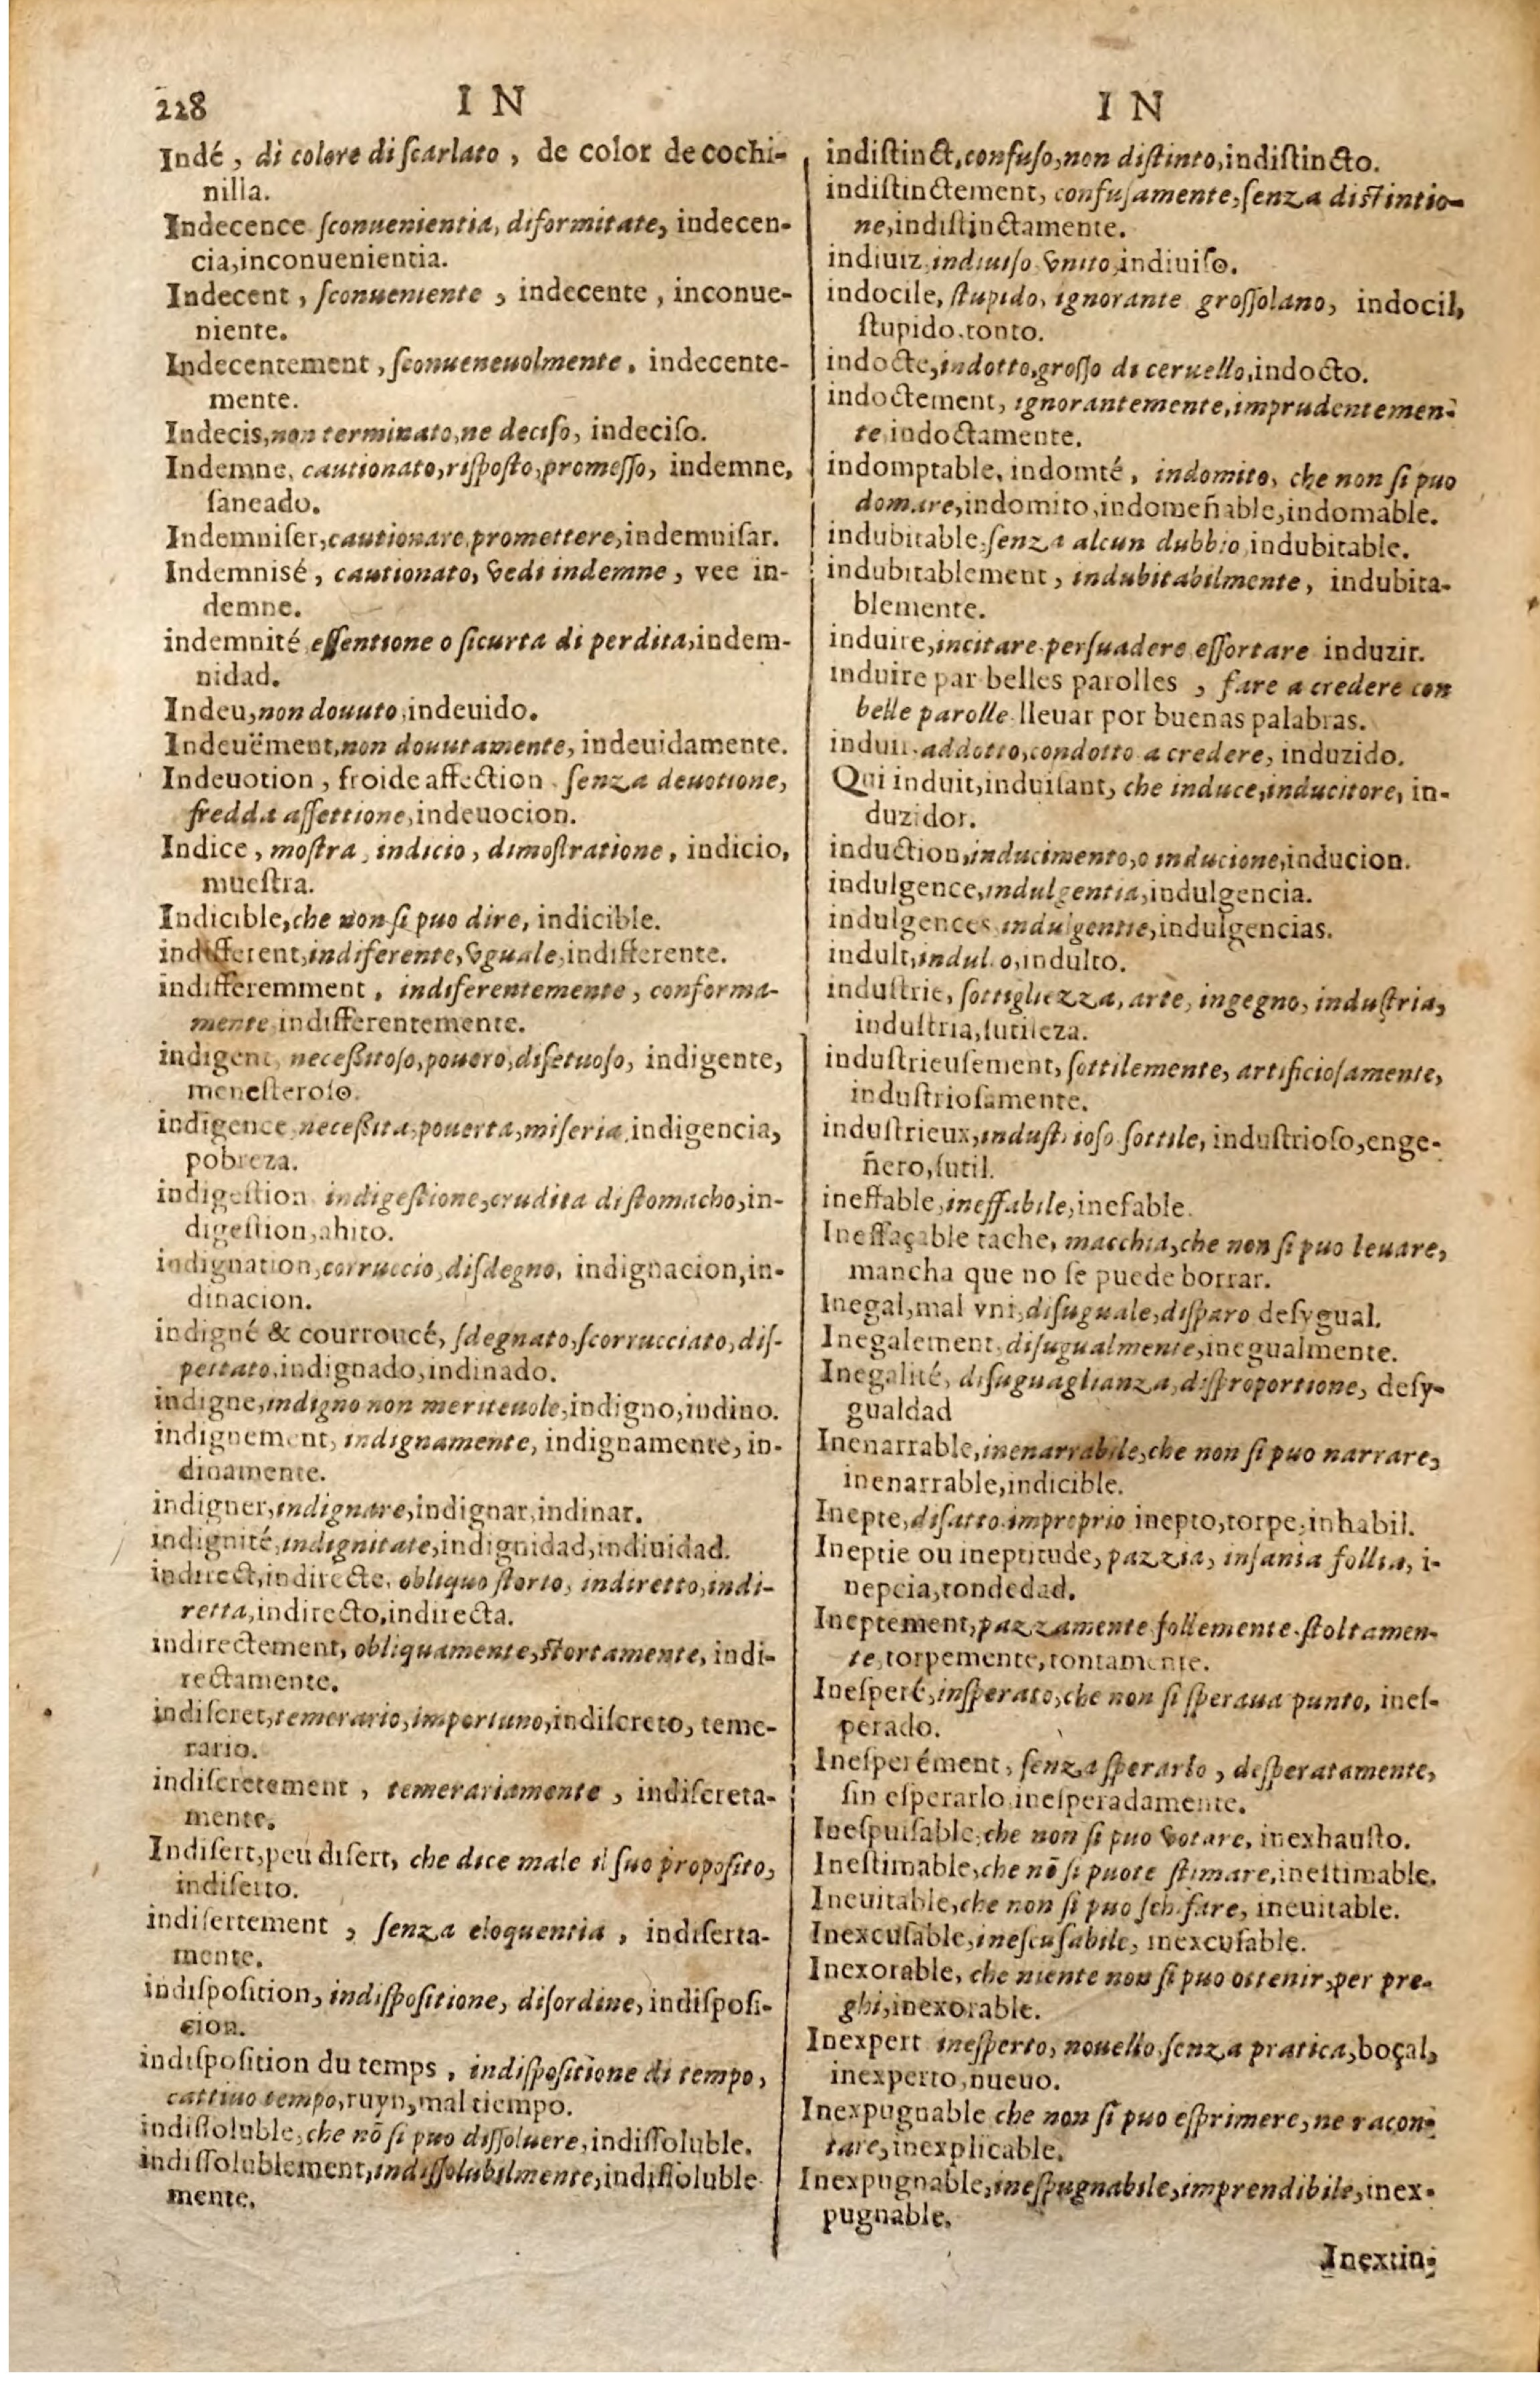 228 IN
Indé, di colore di ſcarlato, de color de cochi-
nilla.
Indecence ſconuenientia, diformitate, indecen-
cia, inconuenientia.
Indecent, ſconueniente, indecente, inconue-
niente.
Indecentement, ſconueneuolmente, indecente-
mente.
Indecis, non terminato, ne deciſo, indeciſo.
Indemne, cautionato, riſpoſto, promeſſo, indemne,
ſaneado.
Indemniſer, cautionare, promettere, indemniſar.
Indemnisé, cautionato, vedi indemne, vee in-
demne.
indemnité eſſentione o ſicurta di perdita, indem-
nidad.
Indeu, non douuto, indeuido.
Indeuëment, non douutamente, indeuidamente.
Indeuotion, froide affection, ſenza deuotione,
fredda affettione, indeuocion.
Indice, moſtra, indicio, dimoſtratione, indicio,
mueſtra.
Indicible, che non ſi puo dire, indicible.
indifferent, indiferente, vguale, indifferente.
indifferemment, indiferentemente, conforma-
mente indifferentemente.
indigent, neceßitoſo, pouero, difetuoſo, indigente,
meneſteroſo.
indigence, neceßita, pouerta, miſeria, indigencia,
pobreza.
indigeſtion indigeſtione, crudita di ſtomacho, in-
digeſtion, ahito.
indignation, corruccio, diſdegno, indignacion, in-
dinacion.
indigné & courroucé, ſdegnato, ſcorrucciato, diſ-
pettato, indignado, indinado.
indigne, indigno non meriteuole, indigno, indino.
indignement, indignamente, indignamente, in-
dinamente.
indigner, indignare, indignar, indinar.
indignité, indignitate, indignidad, indiuidad.
indirect, indirecte, obliquo ſtorto, indiretto, indi-
retta, indirecto, indirecta.
indirectement, obliquamente, ſtortamente, indi-
rectamente.
indiſcret, temerario, importuno, indiſcreto, teme-
rario.
indiſcretement, temerariamente, indiſcreta-
mente.
Indiſert, peu diſert, che dice male il ſuo propoſito,
indiſerto.
indiſertement, ſenza eloquentia, indiſerta-
mente.
indiſpoſition, indiſpoſitione, diſordine, indiſpoſi-
cion.
indiſpoſition du temps, indiſpoſitione di tempo,
cattiuo tempo, ruyn, mal tiempo.
indiſſoluble, che nõ ſi puo diſſoluere, indiſſoluble.
indiſſolublement, indiſſolubilmente, indiſſoluble
mente.
IN
indiſtinct, confuſo, non diſtinto, indiſtincto.
indiſtinctement, confuſamente, ſenza diſtintio-
ne, indiſtinctamente.
indiuiz, indiuiſo vnito, indiuiſo.
indocile, ſtupido, ignorante groſſolano, indocil,
ſtupido, tonto.
indocte, indotto, groſſo di ceruello, indocto.
indoctement, ignorantemente, imprudentemen-
te, indoctamente.
indomptable, indomté, indomito, che non ſi puo
domare, indomito, indomeñable, indomable.
indubitable, ſenza alcun dubbio, indubitable.
indubitablement, indubitabilmente, indubita-
blemente.
induire, incitare perſuadere eſſortare induzir.
induire par belles parolles, fare a credere con
belle parolle lleuar por buenas palabras.
induit, addotto, condotto a credere, induzido.
Qui induit, induiſant, che induce, inducitore, in-
duzidor.
induction, inducimento, o inducione, inducion.
indulgence, indulgentia, indulgencia.
indulgences indulgentie, indulgencias.
indult, indulto, indulto.
induſtrie, ſottigliezza, arte, ingegno, induſtria,
induſtria, ſutileza.
induſtrieuſement, ſottilemente, artificioſamente,
induſtrioſamente.
induſtrieux, induſtrioſo ſottile, induſtrioſo, enge-
ñero, ſutil.
ineffable, ineffabile, inefable.
Ineffaçable tache, macchia, che non ſi puo leuare,
mancha que no ſe puede borrar.
Inegal, mal vni, diſuguale, diſparo deſygual.
Inegalement, diſugualmente, inegualmente.
Inegalité, diſuguaglianza, diſproportione, deſy-
gualdad
Inenarrable, inenarrabile, che non ſi puo narrare,
inenarrable, indicible.
Inepte, diſatto improprio inepto, torpe, inhabil.
Ineptie ou ineptitude, pazzia, inſania follia, i-
nepcia, tondedad.
Ineptement, pazzamente follemente ſtoltamen-
te, torpemente, tontamente.
Ineſperé, inſperato, che non ſi ſperaua punto, ineſ-
perado.
Ineſperément, ſenza ſperarlo, deſperatamente,
ſin eſperarlo, ineſperadamente.
Ineſpuiſable, che non ſi puo votare, inexhauſto.
Ineſtimable, che nõ ſi puote ſtimare, ineſtimable.
Ineuitable, che non ſi puo ſchifare, ineuitable.
Inexcuſable, ineſcuſabile, inexcuſable.
Inexorable, che niente non ſi puo ottenir, per pre-
ghi, inexorable.
Inexpert ineſperto, nouello ſenza pratica, boçal,
inexperto, nueuo.
Inexpugnable che non ſi puo eſprimere, ne racon-
tare, inexplicable.
Inexpugnable, ineſpugnabile, imprendibile, inex-
pugnable.
Inextin-